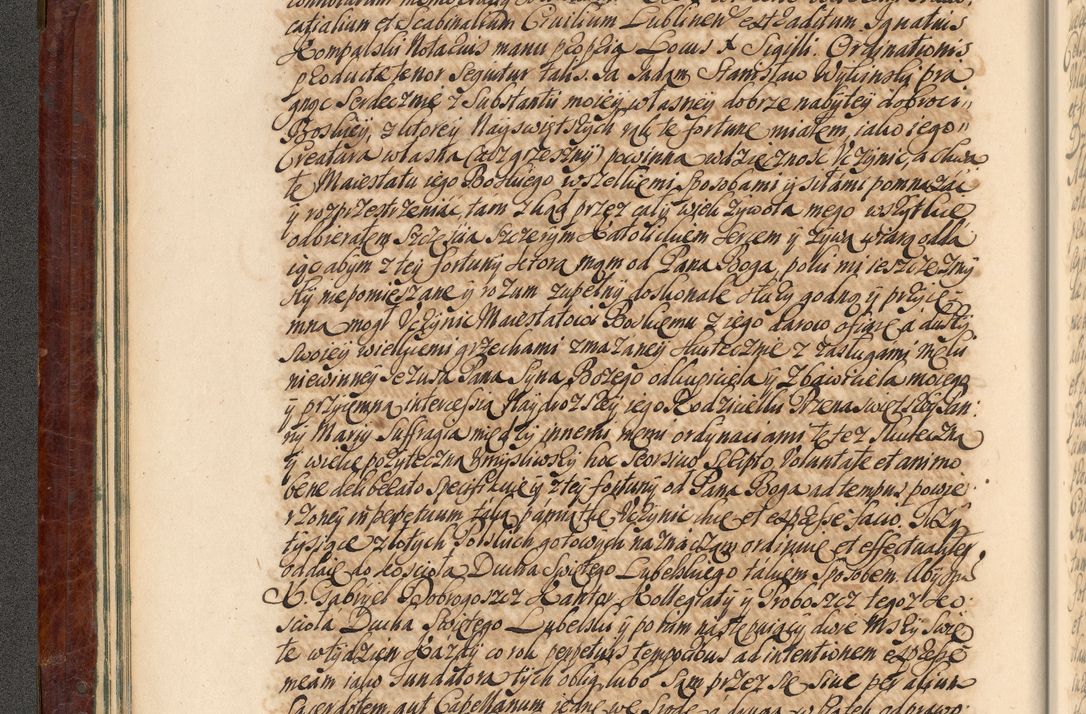 catialium et Scabinalium Civilium Lublinen est Traditum. Ignatius
Kompalski Notarius manu propria Locus Sigilli. Ordinationis
productæ tenor Sequitur talis. Ja Adam Stanisław Wyliński pra
gnąc Serdecznie z Substantii moiey własney dobrze nabytey dobroci
Boskiey, z ktorey Nayswiętszych rąk te fortunę miałem, iako iego
Creatura własna (acz grzeszny) powinną wdzięcznosc Uczynic, a chwa
łę Maiestatu iego Boskiego wszelkiemi Sposobami y siłami pomnażać
y rozprzestrzeniac, tam z kąd przez cały wiek zywota mego wszytkie
odbierałem Szczęscia Szczerym Katolickiem Sercem y żywą wiarą odda
ię abym z tey fortuny ktorą mam od Pana Boga, poki mi ieszcze zmy
sły niepomieszane y rozum zupełny doskonale służy godną y przyię
mną mogł Uczynic Maiestatowi Boskiemu z iego darow ofiarę a duszy
Swoiey wielkiemi grzechami zmazaney skutecznie z zasługami męki
niewinney Jezusa Pana Syna Bozego odkupiciela y Zbawiciela moiego
y przyiemną intercessią Naydrozszey iego Rodzicielki Przenaswiętszey Pan
ny Maryi Suffragia między innemi memi ordynaciami tę też skuteczną
y wielce pozyteczną Umysliwszy hoc Seorsivo Scripto, Voluntate et animo
bene deliberato Specifikuię y z tey fortuny od Pana Boga ad tempus powie
rzoney in perpetuum taką pamiątkę Uczynic chcę et expresse facio. Trzy
tysiące złotych Polskich gotowych naznaczam ordinuię et effectualiter
oddaię do koscioła Ducha Swiętego Lubelskiego takiem Sposobem. Aby Jmc
X. Gabryel Dobrogoszcz Kantor Kollegiaty y Proboszcz tegoz Ko
scioła Ducha Swiętego Lubelski y po nim następuiący dwie Mszy Swię
te w tydzien Kazdy co rok perpetuis temporibus ad intentionem expresse
meam iako Fundatora tych oblig lubo Sam przez się Sive per alium
Sacerdotem, aut Capellanum iednę we Srodę a drugą w Piątek odprawo